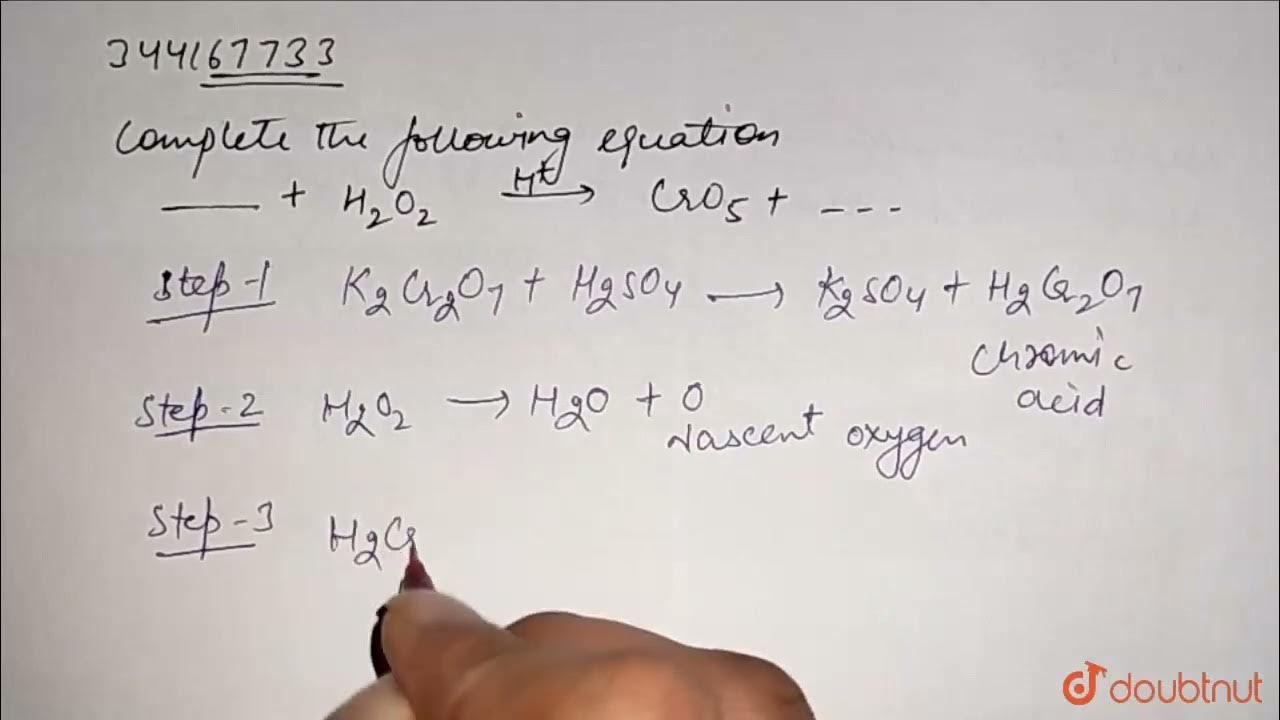 344167733
Complete the following equation
____ + H2O2 H+ → CrO5 + ---
Step-1 K2Cr2O7 + H2SO4 → K2SO4 + H2Cr2O7
Chromic
acid
Step-2 H2O2 → H2O + O
Nascent oxygen
Step-3 H2Cr
doubtnut